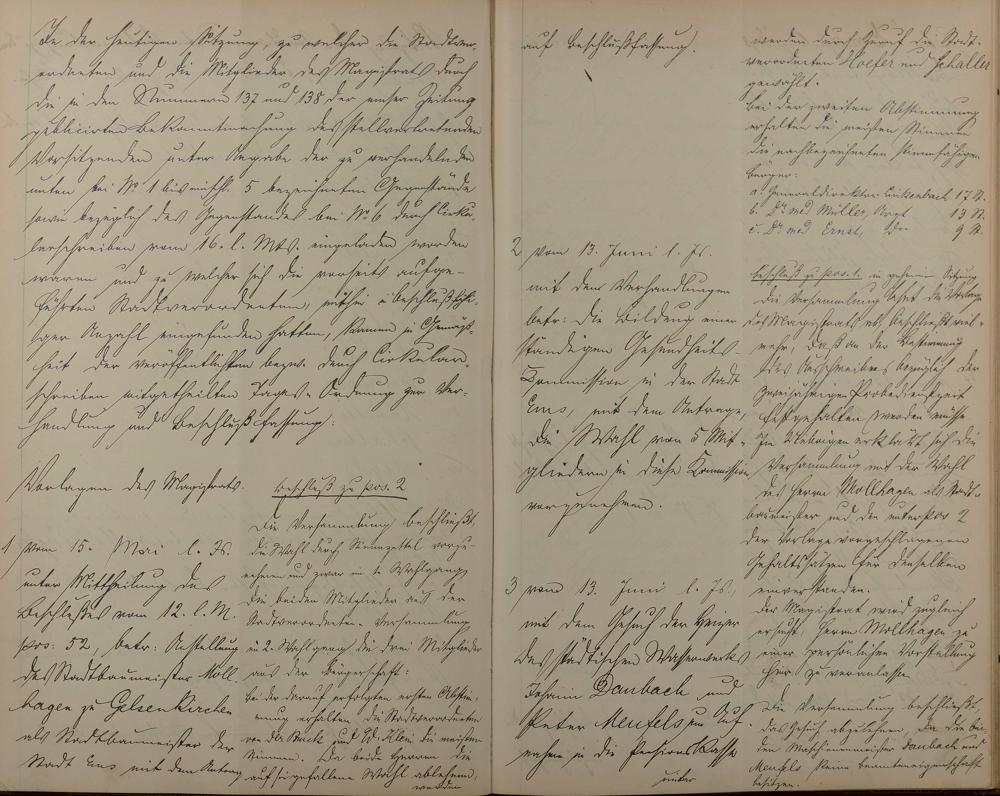 In der heutigen Sitzung, zu welcher die Stadtver-
ordneten und die Mitglieder des Magistrats durch
die in den Nummern 137 und 138 der Emser Zeitung
publicirten Bekanntmachung des stellvertretenden
Vorsitzenden unter Angabe der zu verhandelnden
unten bei No 1 bis 5 bezeichneten Gegenstände
sowie bezüglich des Gegenstandes bei No 6 durch Cirku-
larschreiben vom 16. l. Mts. eingeladen worden
waren und zu welcher sich die vorseits aufge-
führten Stadtverordneten, mithin in beschlußfähi-
ger Anzahl eingefunden hatten, kamen in Gemäß-
heit der veröffentlichten bezw. durch Cirkular-
schreiben mitgetheilten Tages-Ordnung zur Ver-
handlung und Beschlußfassung:
Vorlagen des Magistrats.
1 vom 15. Mai l. Js.
unter Mittheilung des
Beschlußes vom 12. l. M.
pos: 52, betr: Anstellung
des Stadtbaumeister Moll
hagen zu Gelsenkirchen
als Stadtbaumeister der
Stadt Ems mit dem Antrag
Beschluß zu pos. 2
Die Versammlung beschließt,
die Wahl durch Stimmzettel vorzu-
nehmen und zwar im 1. Wahlgang
die beiden Mitglieder aus der
Stadtverordneten-Versammlung
in 2. Wahlgang die drei Mitglieder
aus der Bürgerschaft:
bei der darauf erfolgten ersten Abstim-
mung erhalten die Stadtverordneten
von der Beeck und Klein die meisten
Stimmen. Da beide Herren die
auf sie gefallene Wahl ablehnen,
werden
auf Beschlußfassung.
2 vom 13. Juni l. Js.
mit den Verhandlungen
betr: die Bildung einer
ständigen Gesundheits-
Kommission in der Stadt
Ems, mit dem Antrage,
die Wahl von 5 Mit-
gliedern in diese Kommission
vorzunehmen.
3 vom 13. Juni l. Js.,
mit dem Gesuch der Heizer
des städtischen Wasserwerks
Johann Daubach und
Peter Meufels um Auf-
nahme in die Pensionskasse
unter
werden durch Zuruf die Stadt-
verordneten Hoefer und Schaller
gewählt.
bei der zweiten Abstimmung
erhalten die meisten Stimmen
die nachbezeichneten stimmfähigen
Bürger:
a. Generaldirektor Linkenbach 17 St.
b. Dr. med Müller, Arzt 13 St.
c. Dr. med Ernst, 9 St.
Beschluß zu pos. 1. in geheimer Sitzung
Die Versammlung lehnt die Vorlage
des Magistrats ab, beschließt viel-
mehr, daß an der Bestimmung
des Ausschreibens bezüglich der
zweijährigen Probedienstzeit
festgehalten werden müsse
Im Uebrigen erklärt sich die
Versammlung mit der Wahl
des Herrn Mollhagen als Stadt-
baumeister und den unter pos 2
der Vorlage vorgeschlagenen
Gehaltssätzen für denselben
einverstanden.
Der Magistrat wird zugleich
ersucht, Herrn Mollhagen zu
einer persönlichen Vorstellung
hier zu veranlassen
Die Versammlung beschließt,
das Gesuch abzulehnen, da die bei-
den Maschinenmeister Daubach und
Meufels keine Beamteneigenschaft
besitzen.